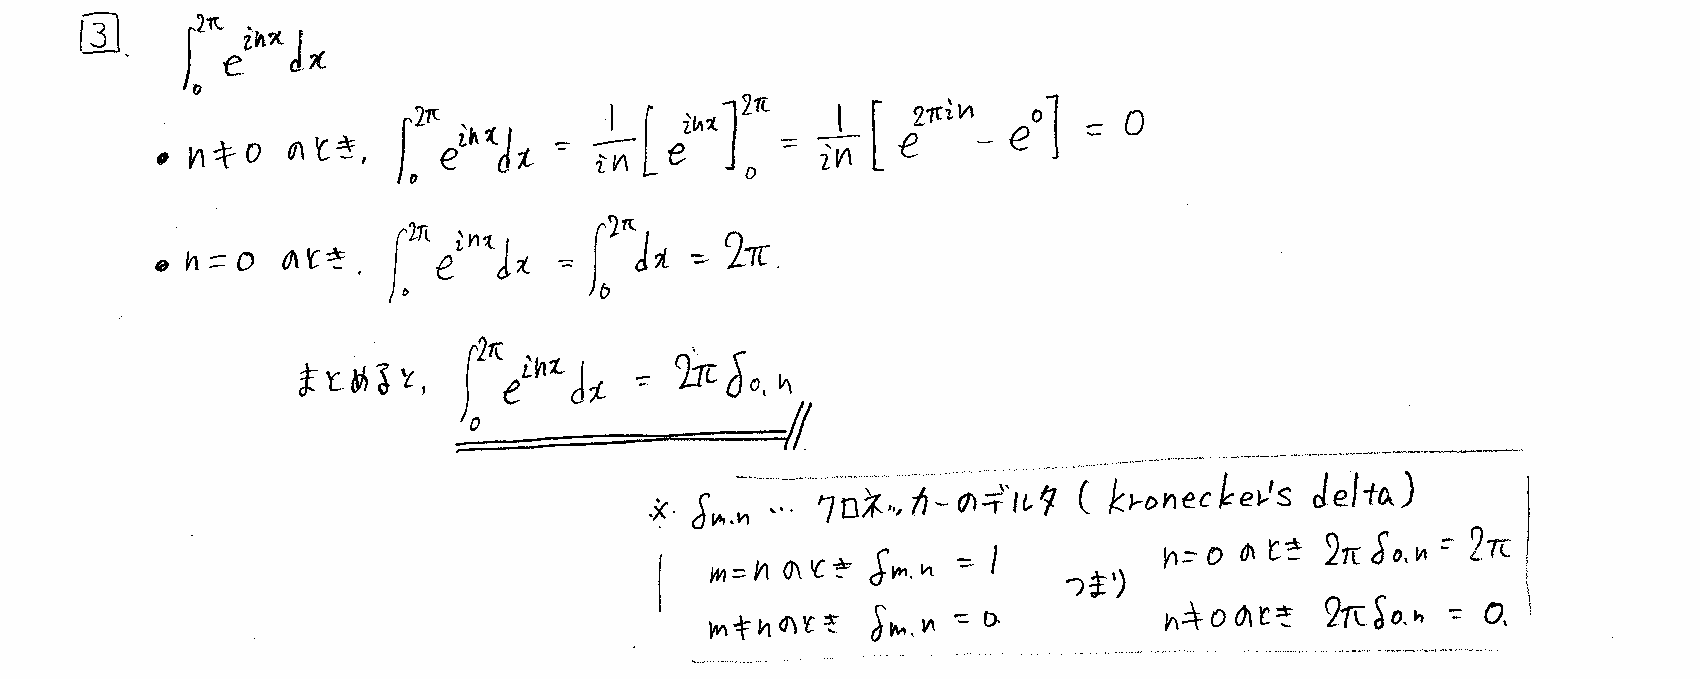 3. ∫₀^{2π} e^{inx} dx
• n≠0 のとき, ∫₀^{2π} e^{inx} dx = 1/(in) [e^{inx}]₀^{2π} = 1/(in) [e^{2πin} - e^0] = 0
• n=0 のとき, ∫₀^{2π} e^{inx} dx = ∫₀^{2π} dx = 2π.
まとめると, ∫₀^{2π} e^{inx} dx = 2π δ_{0,n}
※ δ_{m,n} … クロネッカーのデルタ ( kronecker's delta )
m=n のとき δ_{m,n} = 1
m≠n のとき δ_{m,n} = 0.
つまり
n=0 のとき 2π δ_{0,n} = 2π
n≠0 のとき 2π δ_{0,n} = 0.